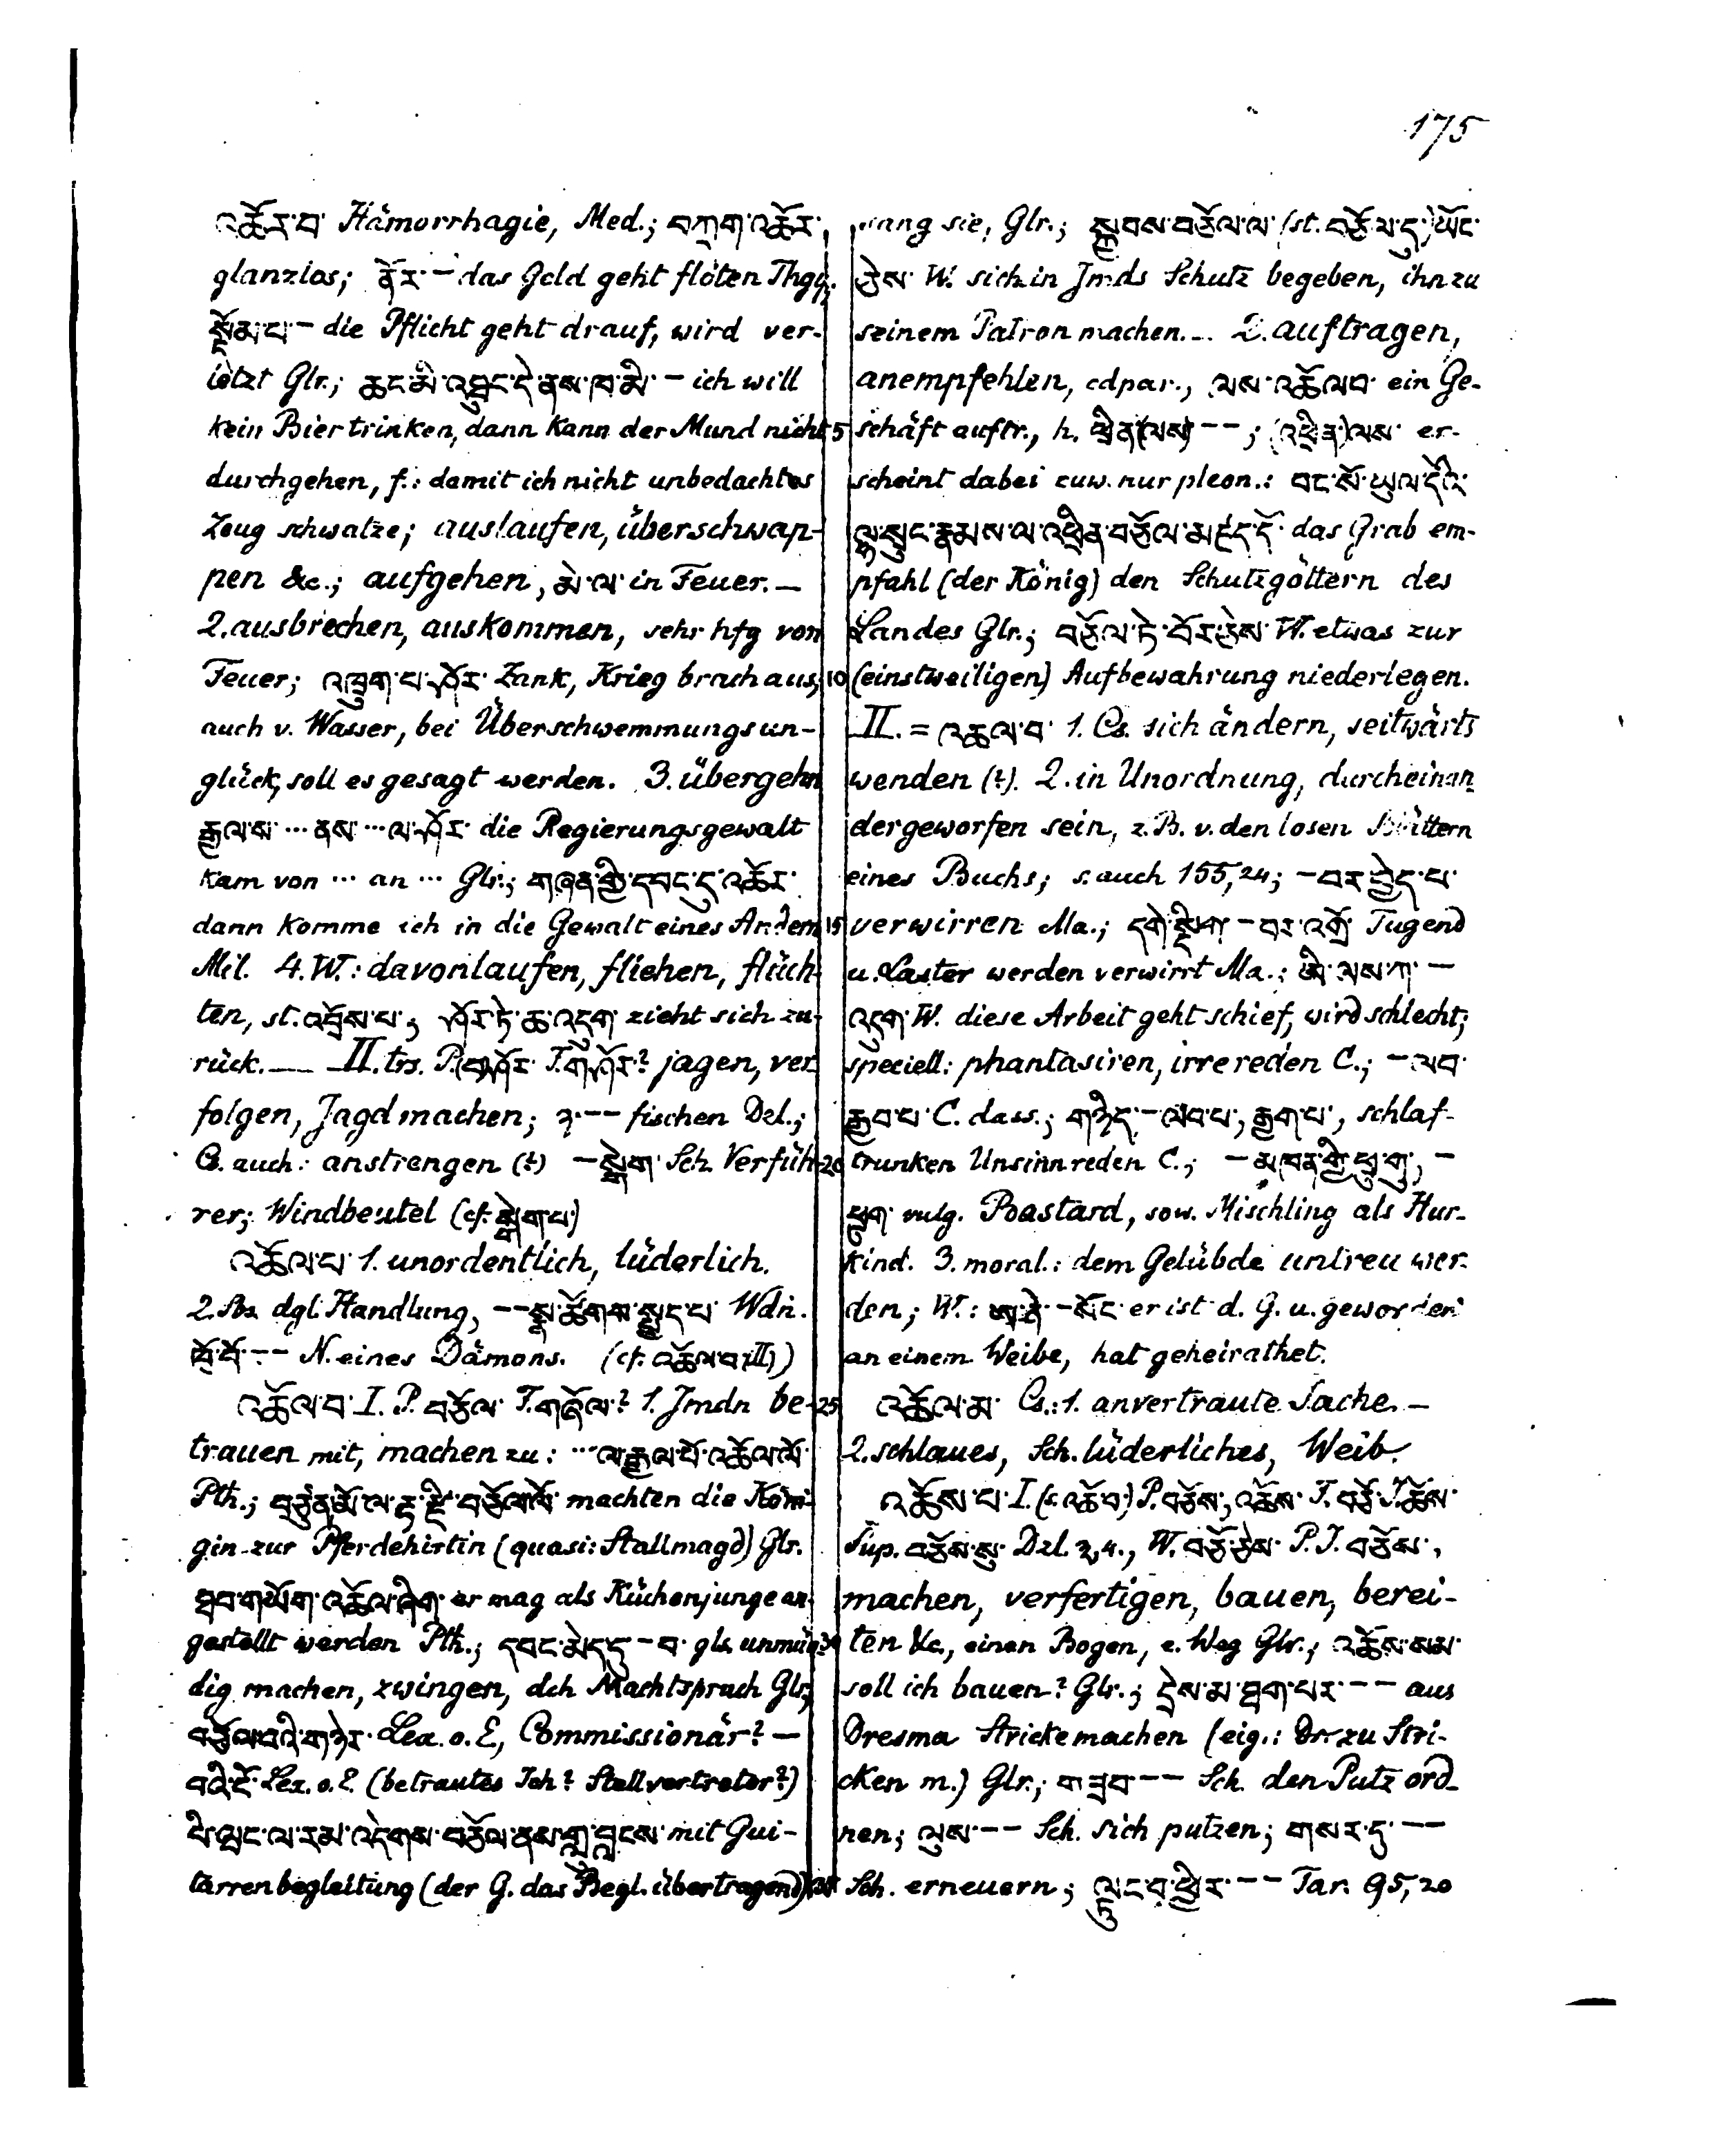 175
འཆོར་བ་ Hämorrhagie, Med.; བཀྲག་འཆོར་
glanzlos; ནོར་ – das Geld geht flöten Thgy.
སྡོམ་པ་ – die Pflicht geht drauf, wird ver-
letzt Glr.; ཆང་མི་འཐུང་དེ་ནས་ཁ་མི་ – ich will
kein Bier trinken, dann kann der Mund nicht 5
durchgehen, f.: damit ich nicht unbedachtes
Zeug schwatze; auslaufen, überschwap-
pen &c.; aufgehen, མེ་ལ་ in Feuer. —
2. ausbrechen, auskommen, sehr hfg von
Feuer; འཁྲུག་པ་ཤོར་ Zank, Krieg brach aus; 10
auch v. Wasser, bei Überschwemmungsun-
glück, soll es gesagt werden. 3. übergehn
རྒྱལ་ས་ ... ནས་ ... ལ་ཤོར་ die Regierungsgewalt
kam von ... an ... Glr.; གཞན་གྱི་དབང་དུ་འཆོར་
dann komme ich in die Gewalt eines Andern 15
Mil. 4. W.: davonlaufen, fliehen, flüch-
ten, st. འབྲོས་པ་; ཤོར་ཏེ་ཆ་འདུག་ zieht sich zu-
rück. — II. trs. P. (བ)ཤོར་ F. གཤོར་? jagen, ver-
folgen, Jagd machen; ཉ་ –– fischen Dzl.;
Cs. auch: anstrengen (?) – སྒེག་ Sch. Verfüh- 20
rer; Windbeutel (cf. སྒེག་པ་)
འཆོལ་པ་ 1. unordentlich, lüderlich.
2. Sbs dgl. Handlung, –– སྣ་ཚོགས་སྤྱད་པ་ Wdn.
ཁྲོ་བོ་ –– N. eines Dämons. (cf. འཆོལ་བ་ II)
འཆོལ་བ་ I. P. བཅོལ་ F. གཞོལ་? 1. Jmdn be- 25
trauen mit, machen zu: ... ལ་རྒྱལ་པོ་འཆོལ་ལོ་
Pth.; བཙུན་མོ་ལ་རྟ་རྫི་བཅོལ་ལོ་ machten die Köni-
gin zur Pferdehirtin (quasi: Stallmagd) Glr.
ཐབ་གཡོག་འཆོལ་ཞིག་ er mag als Küchenjunge an-
gestellt werden Pth.; དབང་མེད་དུ་ – བ་ gls. unmün- 30
dig machen, zwingen, dch Machtspruch Glr;
བཅོལ་བའི་གཉེར་ Lex. o. E, Commissionär? —
བའི་ངོ་ Lex. o. E. (betrautes Ich? Stellvertreter?)
པི་ཝང་ལ་རམ་འདེགས་བཅོལ་ནས་གླུ་བླངས་ mit Gui-
tarrenbegleitung (der G. das Begl. übertragend) 35
sang sie, Glr.; སྐྱབས་བཅོལ་ལ་ (st. བཅོལ་དུ་) ཡོང་
ཅེས་ W. sich in Jmds Schutz begeben, ihn zu
seinem Patron machen. — 2. auftragen,
anempfehlen, cdpar., ལས་འཆོལ་བ་ ein Ge-
schäft auftr., h. ཕྲིན་(ལས་) ––; (འཕྲིན་)ལས་ er-
scheint dabei zuw. nur pleon.: བང་སོ་ཡུལ་དེའི་
ལྷ་སྲུང་རྣམས་ལ་འཕྲིན་བཅོལ་མཛད་དོ་ das Grab em-
pfahl (der König) den Schutzgöttern des
Landes Glr.; བཅོལ་ཏེ་བོར་ཅེས་ W. etwas zur
(einstweiligen) Aufbewahrung niederlegen.
II. = འཆལ་བ་ 1. Cs. sich ändern, seitwärts
wenden (?). 2. in Unordnung, durcheinan-
dergeworfen sein, z. B. v. den losen Blättern
eines Buchs; s. auch 155,24; – བར་བྱེད་པ་
verwirren Ma.; དགེ་སྡིག་ – བར་འགྲོ་ Tugend
u. Laster werden verwirrt Ma.: ཨི་ལས་ཀ་ –
འདུག་ W. diese Arbeit geht schief, wird schlecht;
speciell: phantasiren, irre reden C.; – ལབ་
རྒྱབ་པ་ C. dass.; གཉིད་ – ལབ་པ་, རྒྱག་པ་, schlaf-
trunken Unsinn reden C.; – མ་ཁན་གྱི་ཕྲུ་གུ་, –
ཕྲུག་ vulg. Bastard, sow. Mischling als Hur-
kind. 3. moral.: dem Gelübde untreu wer-
den; W.: ཨ་ནེ་ – སོང་ er ist d. G. u. geworden
an einem Weibe, hat geheirathet.
འཆོལ་མ་ Cs.: 1. anvertraute Sache. —
2. schlaues, Sch. lüderliches, Weib.
འཆོས་པ་ I. (s. འཆོ་བ་) P. བཅོས་, འཆོས་ F. བཅོ་ J. ཆོས་
Sup. བཅོས་སུ་ Dzl. ༢,༤., W. བཅོ་ཅེས་ P. J. བཅོས་,
machen, verfertigen, bauen, berei-
ten &c., einen Bogen, e. Weg Glr.; འཆོས་སམ་
soll ich bauen? Glr.; དྲེས་མ་ཐག་པར་ –– aus
Dresma Stricke machen (eig.: Dr. zu Stri-
cken m.) Glr.; གཟབ་ –– Sch. den Putz ord-
nen; ལུས་ –– Sch. sich putzen; གསར་དུ་ ––
Sch. erneuern; ལྟུང་བ་ཕྱིར་ –– Tar. 95,20